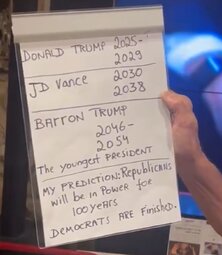 DONALD TRUMP 2025-
2029
JD Vance 2030
2038
BARRON TRUMP
2046-
2054
The youngest PRESIDENT
MY PREDICTION: Republicans
will be in Power for
100 years
DEMOCRATS ARE Finished.